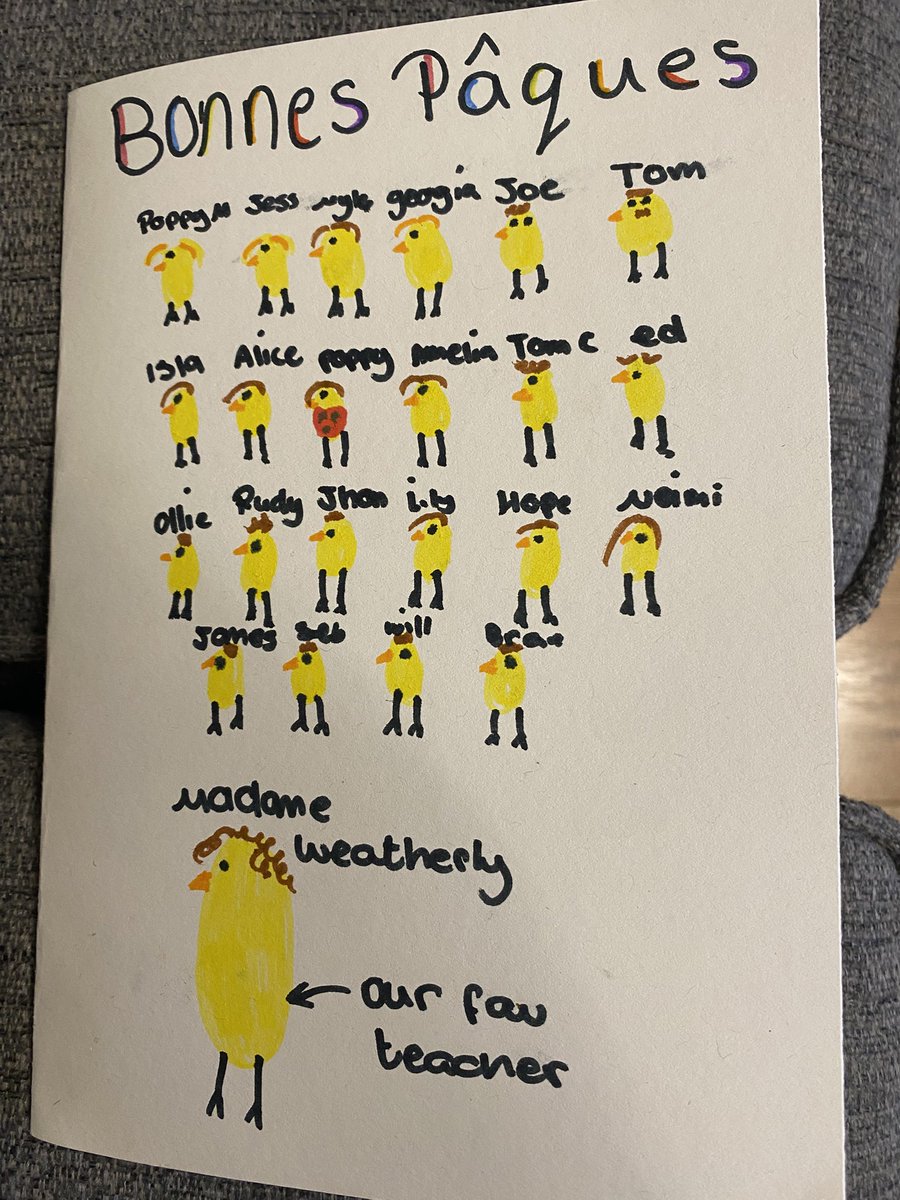 Bonnes Pâques
Poppy M Jess Myla georgia Joe Tom
Isla Alice poppy Amelia Tom C ed
Ollie Rudy Jhon Lily Hope Neimi
James Seb Will
Madame
Weatherly
our fav
teacher